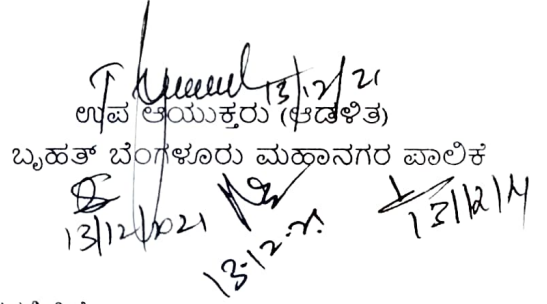 13/12/21
ಉಪ ಆಯುಕ್ತರು (ಆಡಳಿತ)
ಬೃಹತ್ ಬೆಂಗಳೂರು ಮಹಾನಗರ ಪಾಲಿಕೆ
13/12/2021
13-12-21
13/12/21